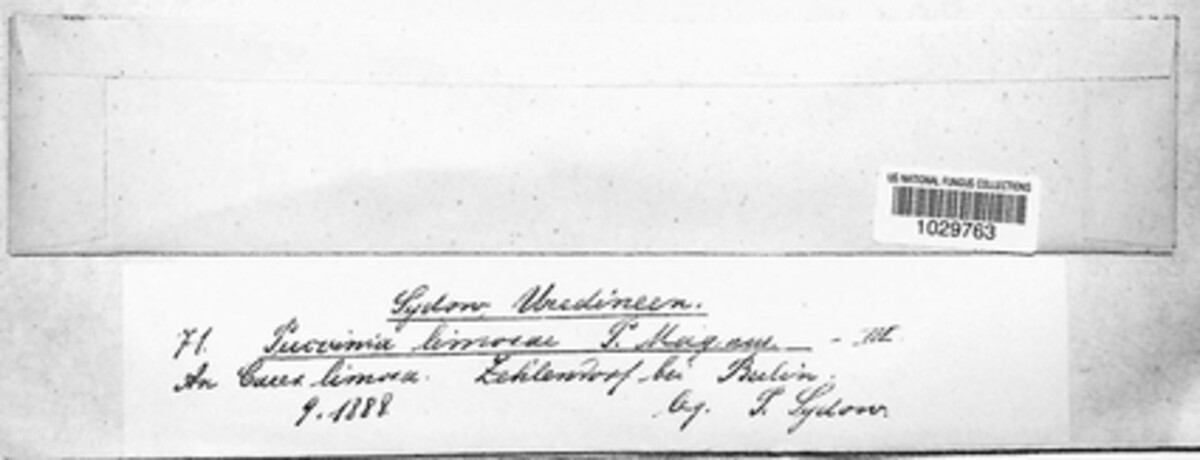 US NATIONAL FUNGUS COLLECTIONS
1029763
Sydow, Uredineen.
71. Puccinia limosae P. Magnus - III.
An Carex limosa. Zehlendorf bei Berlin.
9. 1888 leg. P. Sydow